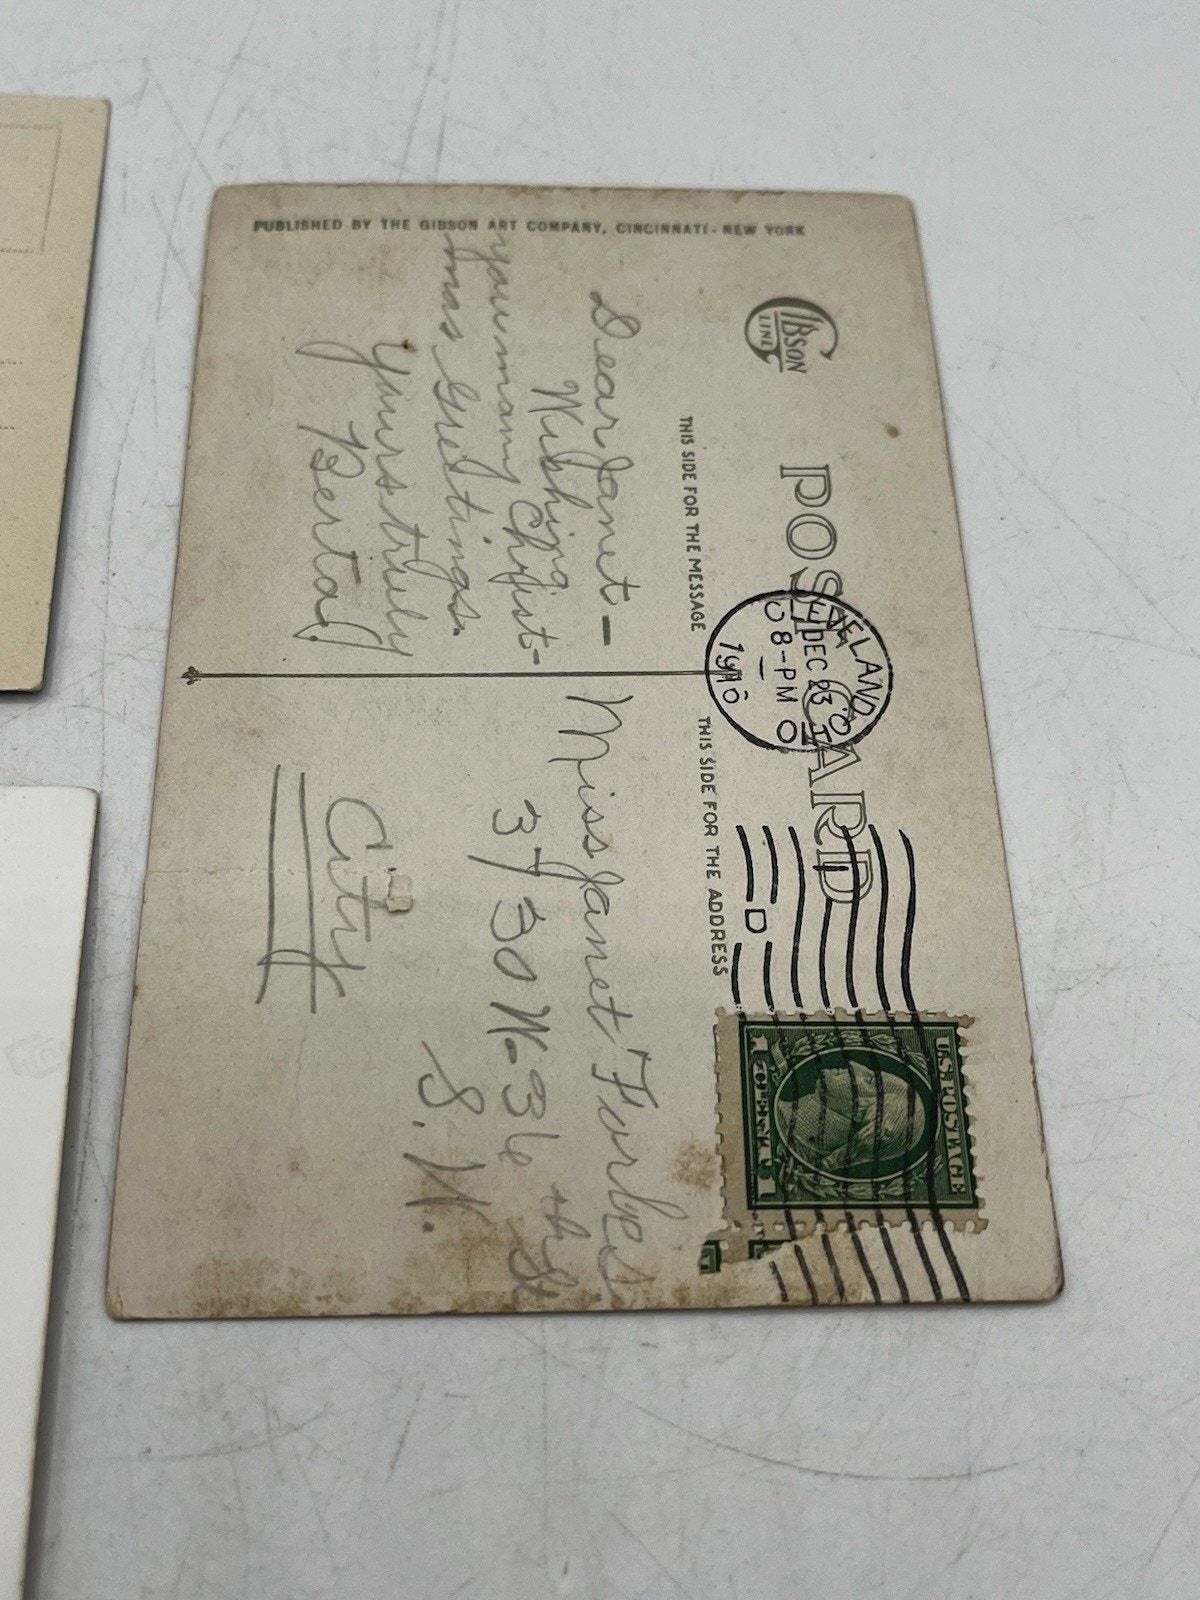 PUBLISHED BY THE GIBSON ART COMPANY, CINCINNATI - NEW YORK
GIBSON
LINE
POST CARD
THIS SIDE FOR THE MESSAGE
THIS SIDE FOR THE ADDRESS
CLEVELAND, O.
DEC 23
8-PM
D
U.S. POSTAGE
1 CENT 1
Dear Janet—
Wishing
you many Christ-
mas Greetings.
Yours truly
Berta
Miss Janet Forbes
3730 W. 36 th St
S. W.
City